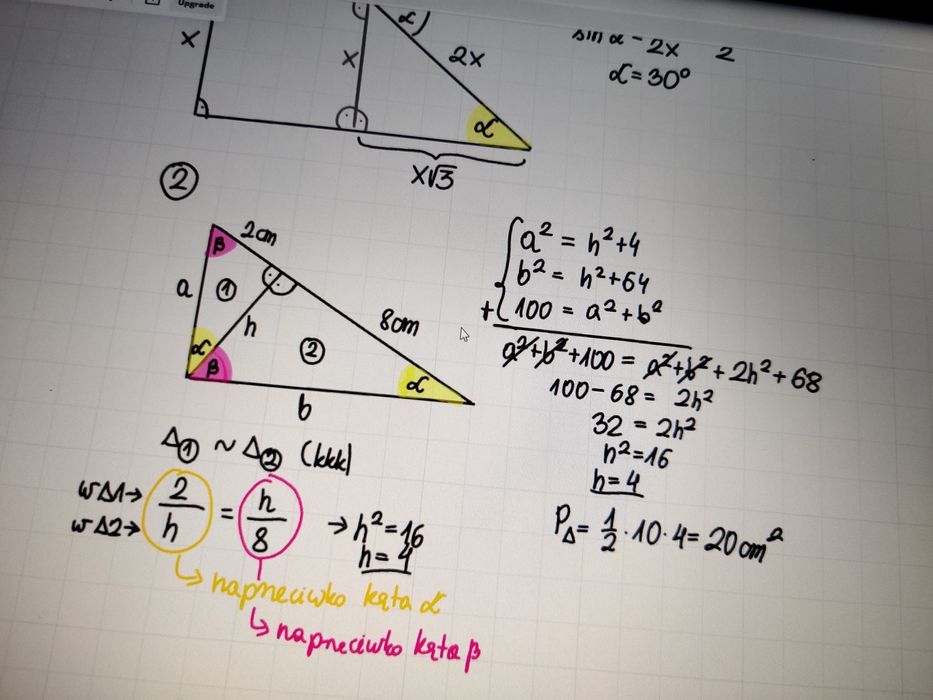 Upgrade
x
x
α
2x
α
x√3
sin α - 2x 2
α = 30°
2
β
2cm
a
1
h
8cm
2
α
β
α
b
a² = h² + 4
b² = h² + 64
+ 100 = a² + b²
a² + b² + 100 = a² + b² + 2h² + 68
100 - 68 = 2h²
32 = 2h²
h² = 16
h = 4
P△ = 1/2 · 10 · 4 = 20 cm²
△① ~ △② (kkk)
w △1 → 2/h = h/8 → h² = 16
w △2 → h = 4
↳ naprzeciwko kąta α
↳ naprzeciwko kąta β